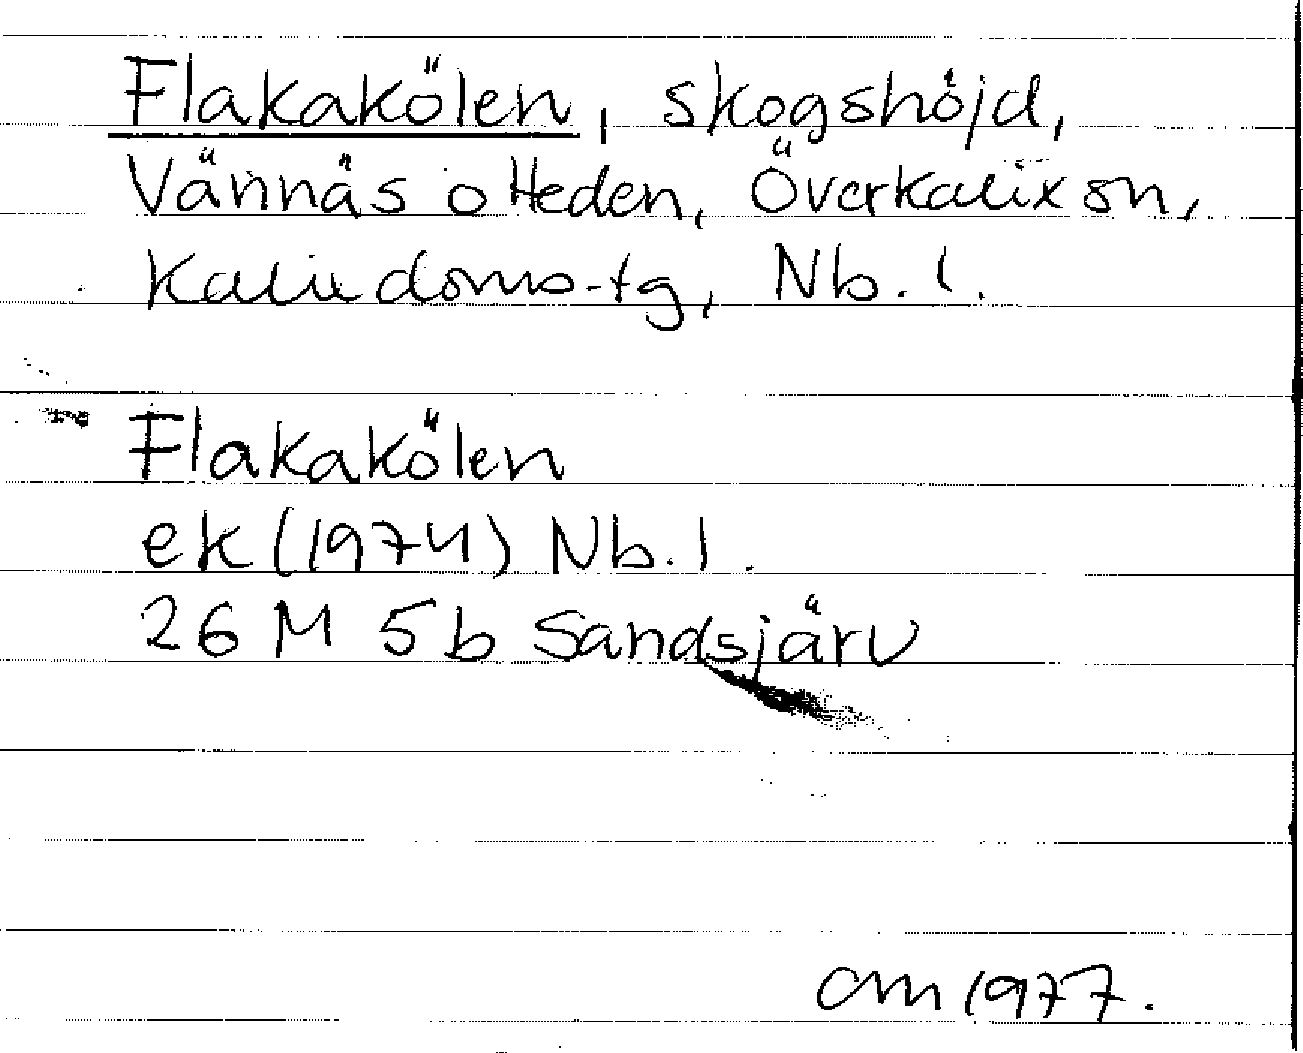 Flakakölen, skogshöjd,
Vännäs o Heden, Överkalix sn,
Kalix doms-tg, Nb. l.
Flakakölen
ek (1974) Nb. l.
26 M 5b Sandsjärv
am 1977.